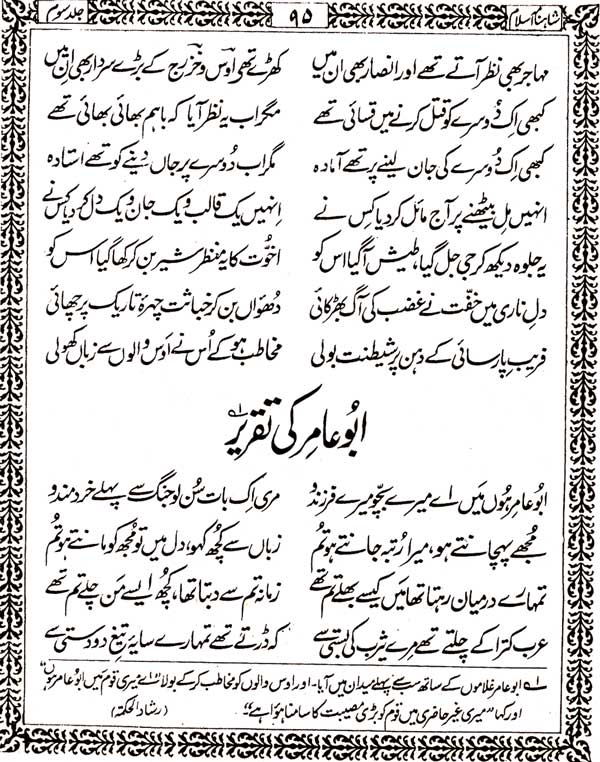 شاہنامہ اسلام ۹۵ جلد سوم
مہاجر بھی نظر آتے تھے اور انصار بھی ان میں کھڑے تھے اوس و خزرج کے بڑے سردار بھی ان میں
کبھی اک دُوسرے کو قتل کرنے میں قسائی تھے مگر اب یہ نظر آیا کہ باہم بھائی بھائی تھے
کبھی اِک دُوسرے کی جان لینے پر تھے آمادہ مگر اب دُوسرے پر جاں دینے کو تھے استادہ
انہیں مل بیٹھنے پر آج مائل کر دیا کس نے اِنہیں یک قالب و یک جان و یک دل کر دیا کس نے
یہ جلوہ دیکھ کر جی جل گیا، طیش آ گیا اس کو اخوّت کا یہ منظر شیر بن کر کھا گیا اس کو
دلِ ناری میں خفّت نے غضب کی آگ بھڑکائی دھُواں بن کر خباثت چہرۂ تاریک پر چھائی
فریبِ پارسائی کے دہن پر شیطنت بولی مخاطب ہو کے اُس نے اَوس والوں سے زباں کھولی
ابُو عامِر کی تقریر لہ
ابُو عامر ہُوں مَیں اے میرے بچّو میرے فرزندو مری اِک بات سُن لو جنگ سے پہلے خردمندو
مُجھے پہچانتے ہو، میرا رُتبہ جانتے ہو تُم زباں سے کُچھ کہو، دل میں تو مُجھ کو مانتے ہو تُم
تمہارے درمیاں رہتا تھا مَیں کیسے بھلے تم تھے زمانہ تم سے دبتا تھا، کُچھ ایسے مَن چلے تم تھے
عرب کترا کے چلتے تھے مِرے یثرب کی بستی سے کہ ڈرتے تھے تمہارے سایۂ تیغِ دو دستی سے
لہ ابو عامر غلاموں کے ساتھ سب سے پہلے میدان میں آیا۔ اور اوس والوں کو مخاطب کر کے بولا "اے میری قوم میں ابو عامر ہوں"
اور کہا "میری غیر حاضری میں قوم کو بڑی مصیبت کا سامنا ہوا ہے" (رشاد الحکمۃ)